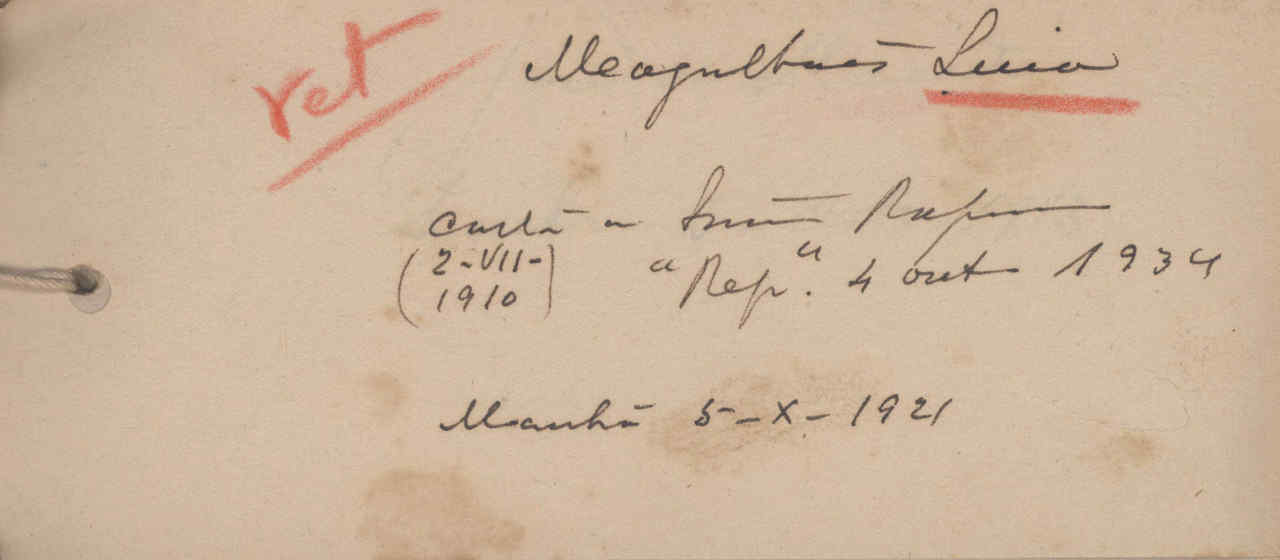 ret
Magalhães Lima
carta a
(2-VII-1910) "Rep". 4 out 1934
Manhã 5-X-1921